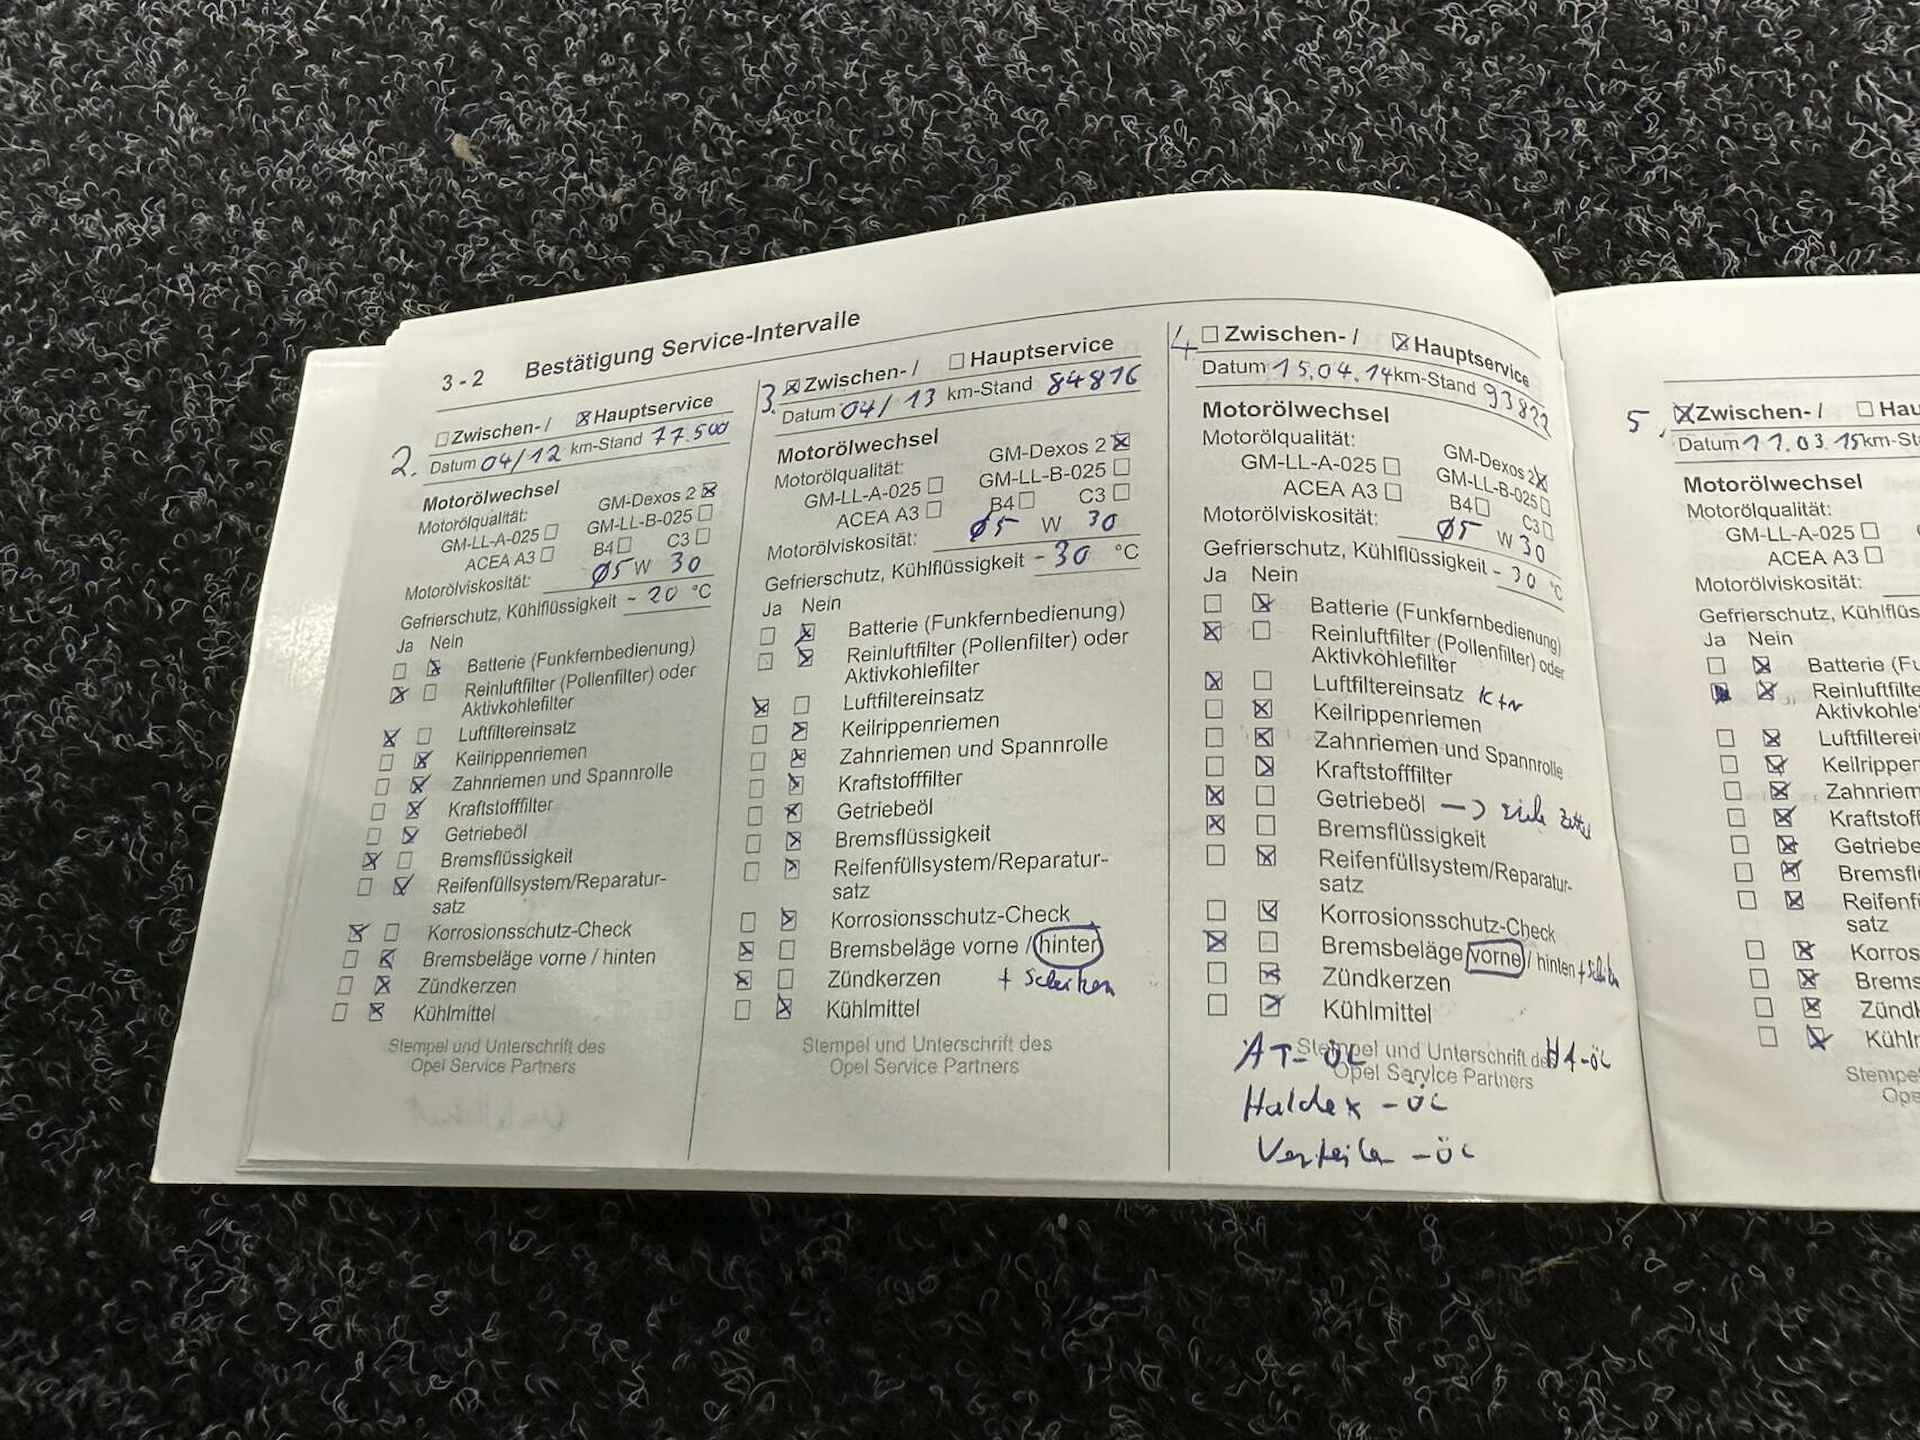 3 - 2 Bestätigung Service-Intervalle
2.
☐ Zwischen- / ☒ Hauptservice
Datum 04/12 km-Stand 77.500
Motorölwechsel
Motorölqualität: GM-Dexos 2 ☒
GM-LL-A-025 ☐ GM-LL-B-025 ☐
ACEA A3 ☐ B4 ☐ C3 ☐
Motorölviskosität: Ø5 W 30
Gefrierschutz, Kühlflüssigkeit - 20 °C
Ja Nein
☐ ☒ Batterie (Funkfernbedienung)
☒ ☐ Reinluftfilter (Pollenfilter) oder
Aktivkohlefilter
☒ ☐ Luftfiltereinsatz
☐ ☒ Keilrippenriemen
☐ ☒ Zahnriemen und Spannrolle
☐ ☒ Kraftstofffilter
☐ ☒ Getriebeöl
☒ ☐ Bremsflüssigkeit
☐ ☒ Reifenfüllsystem/Reparatur-
satz
☒ ☐ Korrosionsschutz-Check
☐ ☒ Bremsbeläge vorne / hinten
☐ ☒ Zündkerzen
☐ ☒ Kühlmittel
Stempel und Unterschrift des
Opel Service Partners
3.
☒ Zwischen- / ☐ Hauptservice
Datum 04/13 km-Stand 84816
Motorölwechsel
Motorölqualität: GM-Dexos 2 ☒
GM-LL-A-025 ☐ GM-LL-B-025 ☐
ACEA A3 ☐ B4 ☐ C3 ☐
Motorölviskosität: Ø5 W 30
Gefrierschutz, Kühlflüssigkeit - 30 °C
Ja Nein
☐ ☒ Batterie (Funkfernbedienung)
☐ ☒ Reinluftfilter (Pollenfilter) oder
Aktivkohlefilter
☒ ☐ Luftfiltereinsatz
☐ ☒ Keilrippenriemen
☐ ☒ Zahnriemen und Spannrolle
☐ ☒ Kraftstofffilter
☐ ☒ Getriebeöl
☐ ☒ Bremsflüssigkeit
☐ ☒ Reifenfüllsystem/Reparatur-
satz
☐ ☒ Korrosionsschutz-Check
☒ ☐ Bremsbeläge vorne / hinten
☒ ☐ Zündkerzen + Scheiben
☐ ☒ Kühlmittel
Stempel und Unterschrift des
Opel Service Partners
4
☐ Zwischen- / ☒ Hauptservice
Datum 15.04.14 km-Stand 93822
Motorölwechsel
Motorölqualität: GM-Dexos 2 ☒
GM-LL-A-025 ☐ GM-LL-B-025 ☐
ACEA A3 ☐ B4 ☐ C3 ☐
Motorölviskosität: Ø5 W 30
Gefrierschutz, Kühlflüssigkeit - 30 °C
Ja Nein
☐ ☒ Batterie (Funkfernbedienung)
☒ ☐ Reinluftfilter (Pollenfilter) oder
Aktivkohlefilter
☒ ☐ Luftfiltereinsatz K+N
☐ ☒ Keilrippenriemen
☐ ☒ Zahnriemen und Spannrolle
☐ ☒ Kraftstofffilter
☒ ☐ Getriebeöl → siehe Zettel
☒ ☐ Bremsflüssigkeit
☐ ☒ Reifenfüllsystem/Reparatur-
satz
☐ ☒ Korrosionsschutz-Check
☒ ☐ Bremsbeläge vorne / hinten + Scheiben
☐ ☒ Zündkerzen
☐ ☒ Kühlmittel
Stempel und Unterschrift des
Opel Service Partners
AT-ÖL HA-ÖL
Haldex - ÖL
Verteiler - ÖL
5.
☒ Zwischen- / ☐ Hau
Datum 11.03.15 km-St
Motorölwechsel
Motorölqualität:
GM-LL-A-025 ☐
ACEA A3 ☐
Motorölviskosität:
Gefrierschutz, Kühlflüs
Ja Nein
☐ ☒ Batterie (Fu
☒ ☒ Reinluftfilte
Aktivkohle
☐ ☒ Luftfilterei
☐ ☒ Keilrippen
☐ ☒ Zahnriem
☐ ☒ Kraftstoff
☐ ☒ Getriebe
☐ ☒ Bremsfl
☐ ☒ Reifenf
satz
☐ ☒ Korros
☐ ☒ Brems
☐ ☒ Zünd
☐ ☒ Kühl
Stempe
Ope